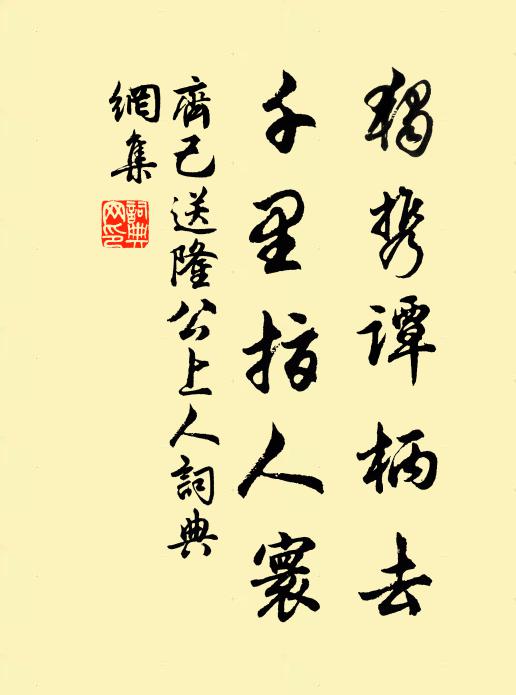 独携谭柄去
千里指人寰
齊己送隆公上人詞典
網集
詞典
网印